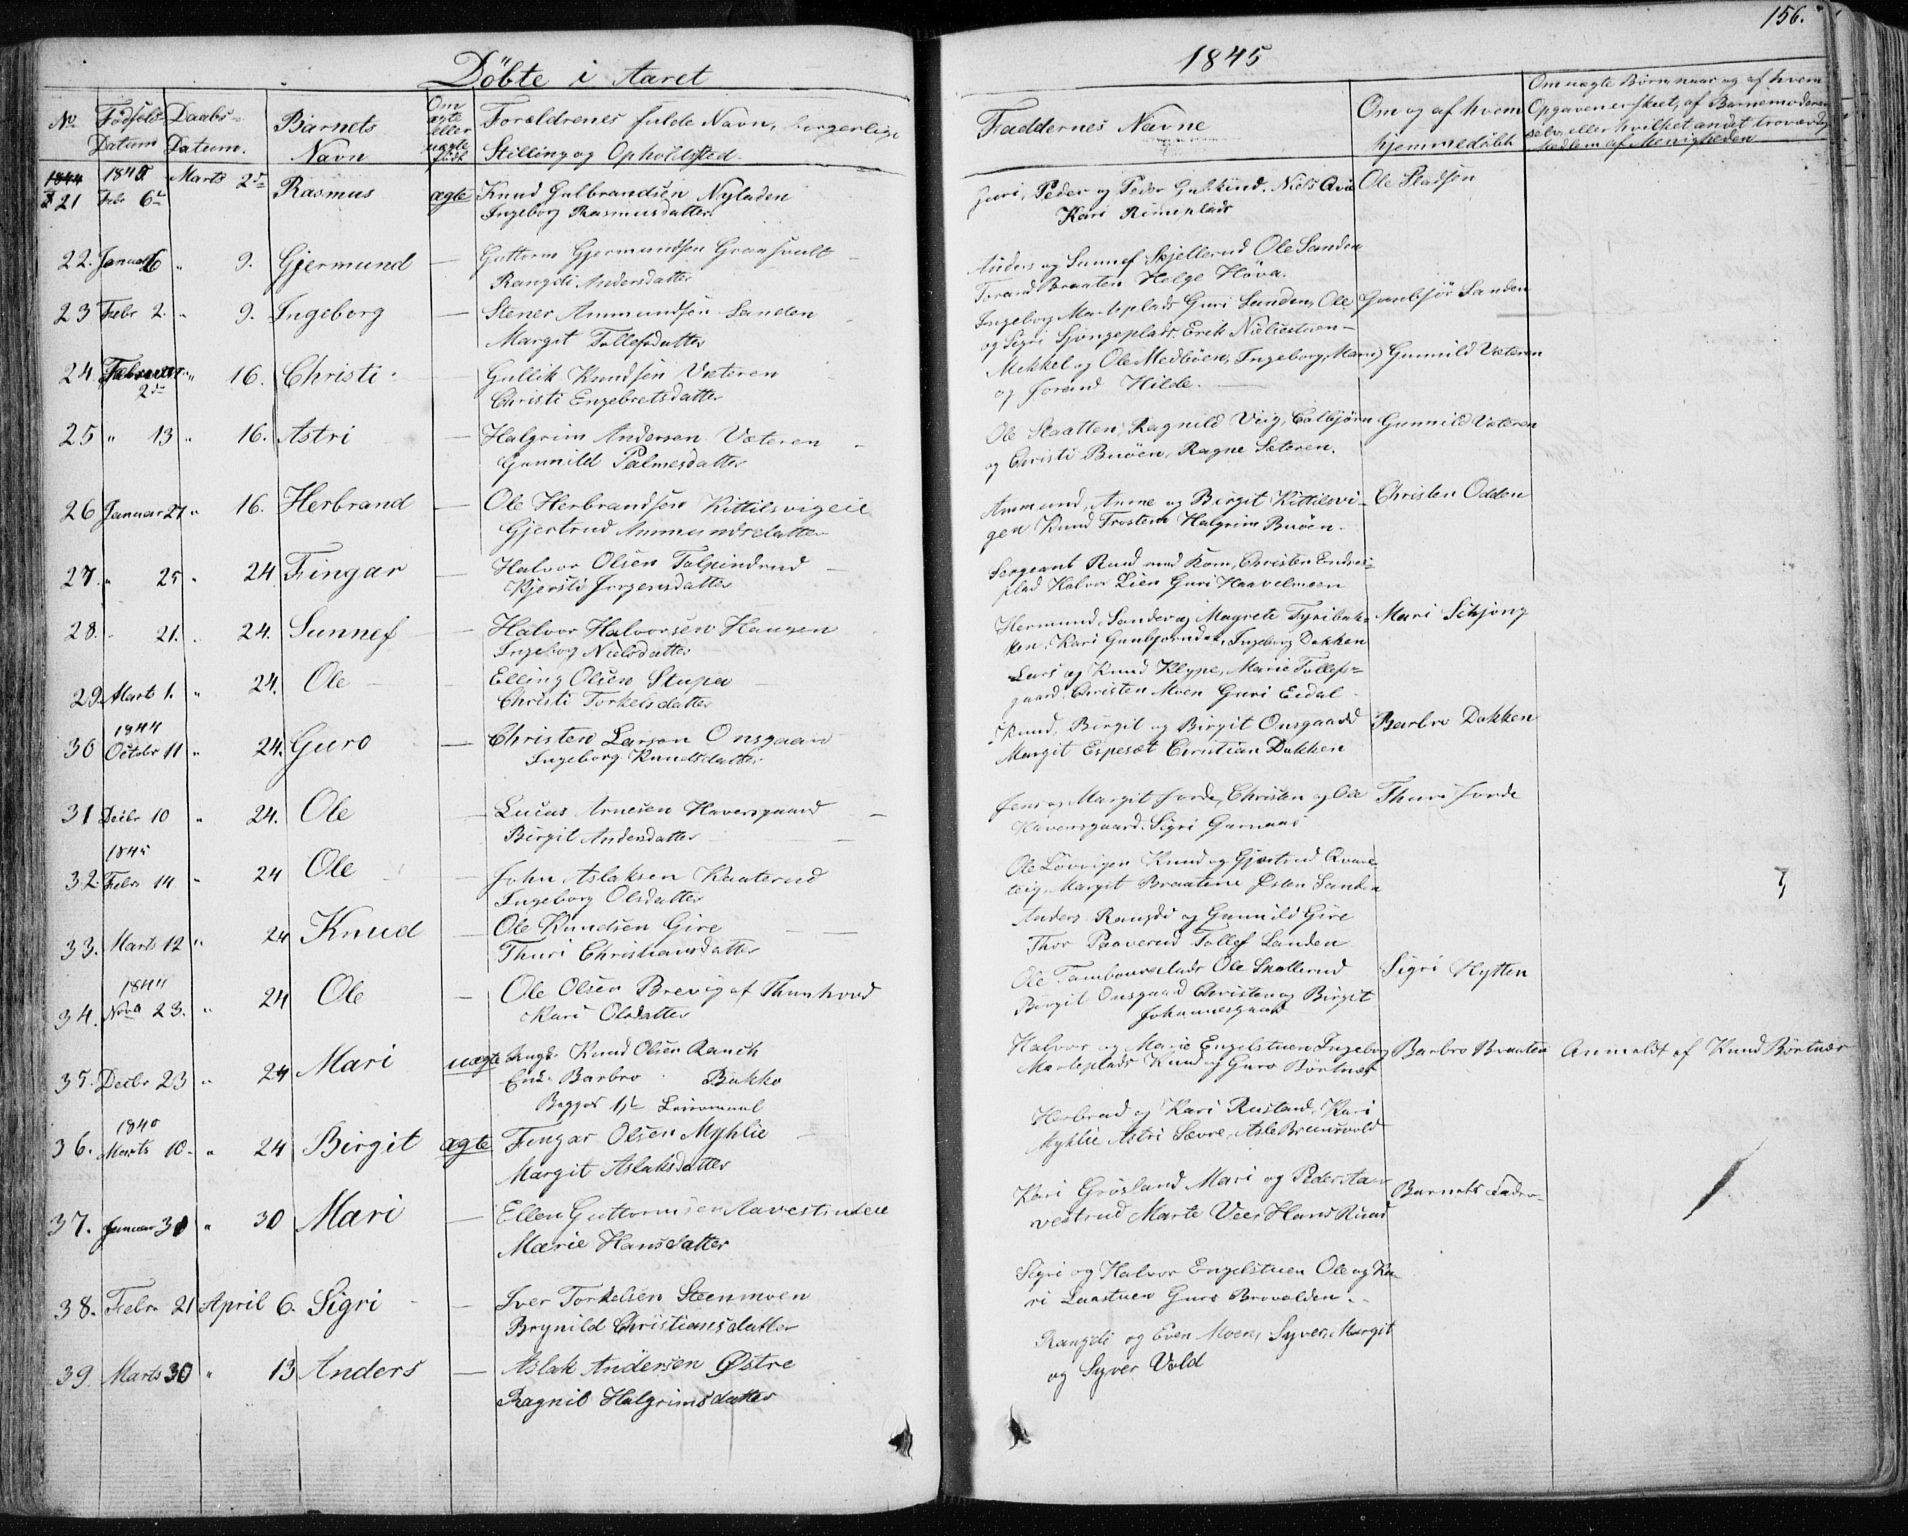 156.
Döbte i Aaret
1845
No
Födsels Datum
Daabs-Datum.
Barnets Navn
Om ægte eller uægte födt
Forældrenes fulde Navn, borgerlige
Stilling og Opholdsted.
Faddernes Navne
Om og af hvem
hjemmedöbt
Om uægte Börn, naar og af hvem
Opgaven er skeet, af Barnemoderen
selv, eller hvilket andet troværdigt
Medlem af Menigheden
1844 1845 Marts 2d Rasmus ægte Knud Gulbrandsen Nyladen
21 Febr 6te Ingeborg Rasmusdatter
Guri, Peder og Peder Gulhund, Niels Ole Sladson
Kari Rimeplads
22. Januar 6 " 9. Gjermund — Guttorm Gjermundsen
Rangdi Andersdatter
Anders og Sunnef Skjellerud Ole Sanden
Torand Braaten Helge Höva.
23 Febr 2. " 9. Ingeborg — Stener Ammundsen Sanden
Margit Tollefsdatter
Ingeborg Marteplads Guri Sanden, Ole Gunbjör Sanden
og Sigri Erik
24 Februar 2de " 16. Christi — Gullik Knudsen Væteren
Christi Engebretsdatter
Mekkel og Ole Medböen, Ingeborg, Mari Gunnild Væteren
og Jorand Hilde.
25 " 13 " 16. Astri — Halgrim Andersen Væteren
Gunnild Palmesdatter
Ole Slaatten, Ragnild Veig, Gulbjörn Gunnild Væteren
og Christi Buöen, Ragne Sæteren.
26 Januar 27 " 16. Herbrand — Ole Herbrandsen Kittilsvigeie
Gjertrud Ammundsdatter
Ammund, Anne og Birgit Kittilsvi- Christen Odden
gen Knud Trostem Halgrim Buöen.
27. " 25 " 24 Fingar — Halvor Olsen Tolpinrud
Kjersti Jörgensdatter
Sergeant Ruud med Kone, Christen Endres-
plad Halvor Lien Guri Haavelmoen
28. " 21. " 24. Sunnef — Halvor Halvorsen Haugen
Ingeborg Nielsdatter
Hermund, Sander og Magrete Fyribak- Mari Schjöng
ken, Kari Gunbjörnsdat, Ingeborg Dokken
29. Marts 1. " 24. Ole — Elling Olsen Stupa
Christi Torkelsdatter
Lars og Knud Klype, Marie Tollefs-
gaard, Christen Moen Guri Eidal
1844
30 Octobr 11 " 24. Guro — Christen Larsen Onsgaard
Ingeborg Knudsdatter
Knud, Birgit og Birgit Onsgaard Barbro Dokken
Margit Espeset Christian Dokken
31 Decbr 10 " 24. Ole — Lucas Arnesen Haversgaard
Birgit Andersdatter
Jens og Margit Jorde, Christen og Ole Thuri Jorde
Haversgaard, Sigri Garnaas
1845
32. Febr 14 " 24 Ole — John Aslaksen Kaaterud
Ingeborg Olsdatter
Ole Lövvigen Knud og Gjertrud
teig, Margit Braatene Östen Sanden
33. Marts 12 " 24 Knud — Ole Knudsen Gire
Thuri Christiansdatter
Anders Rangdi og Gunnild Gire
Thor Tollef Sanden
1844
34. Novb 23. " 24 Ole — Ole Olsen Brevig af Thunhovd
Kari Olsdatter
Ole Tambourplads Ole Skollerud Sigri Hytten
Birgit Onsgaard Christen og Birgit
Johannesgaard
35. Decbr 23 " 24 Mari uægte Ungk. Knud Olsen Ranch
Enk. Barbro Bakko
Begges 1ste Leiermaal
Halvor og Marie Engelstuen Ingeborg Barbro Braaten Anmeldt af Knud Börtnæs
Marteplads Knud og Guro Börtnæs
1845
36. Marts 10. " 24 Birgit ægte Fingar Olsen Myhlie
Margit Aslaksdatter
Herbrad og Kari Rustand, Kari
Myhlie Astri Sævre, Asle Bruunsvold
37. Januar 30 " 30 Mari — Ellen Guttormsen Aavestrudeie
Marie Hansdatter
Kari Grösland Mari og Peder Aa- Barnets Fader
vestrud Marte Vee, Hans Ruud
38. Febr 21 April 6. Sigri — Iver Torkelsen Steenmoen
Brynild Christiansdatter
Sigri og Halvor Engelstuen Ole og Ka-
ri Laastuen Guro Brovolden.
39. Marts 30 " 13 Anders — Aslak Andersen Østre
Ragnil Halgrimsdatter
Rangdi og Even Moen, Syver, Margit
og Syver Vold